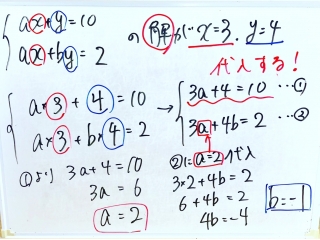 ax+y=10
ax+by=2
の解が… x=3. y=4
代入する!
a×3+4=10
a×3+b×4=2
→
3a+4=10 …①
3a+4b=2 …②
①より 3a+4=10
3a=6
a=2
②に a=2 代入
3×2+4b=2
6+4b=2
4b=-4
b=-1